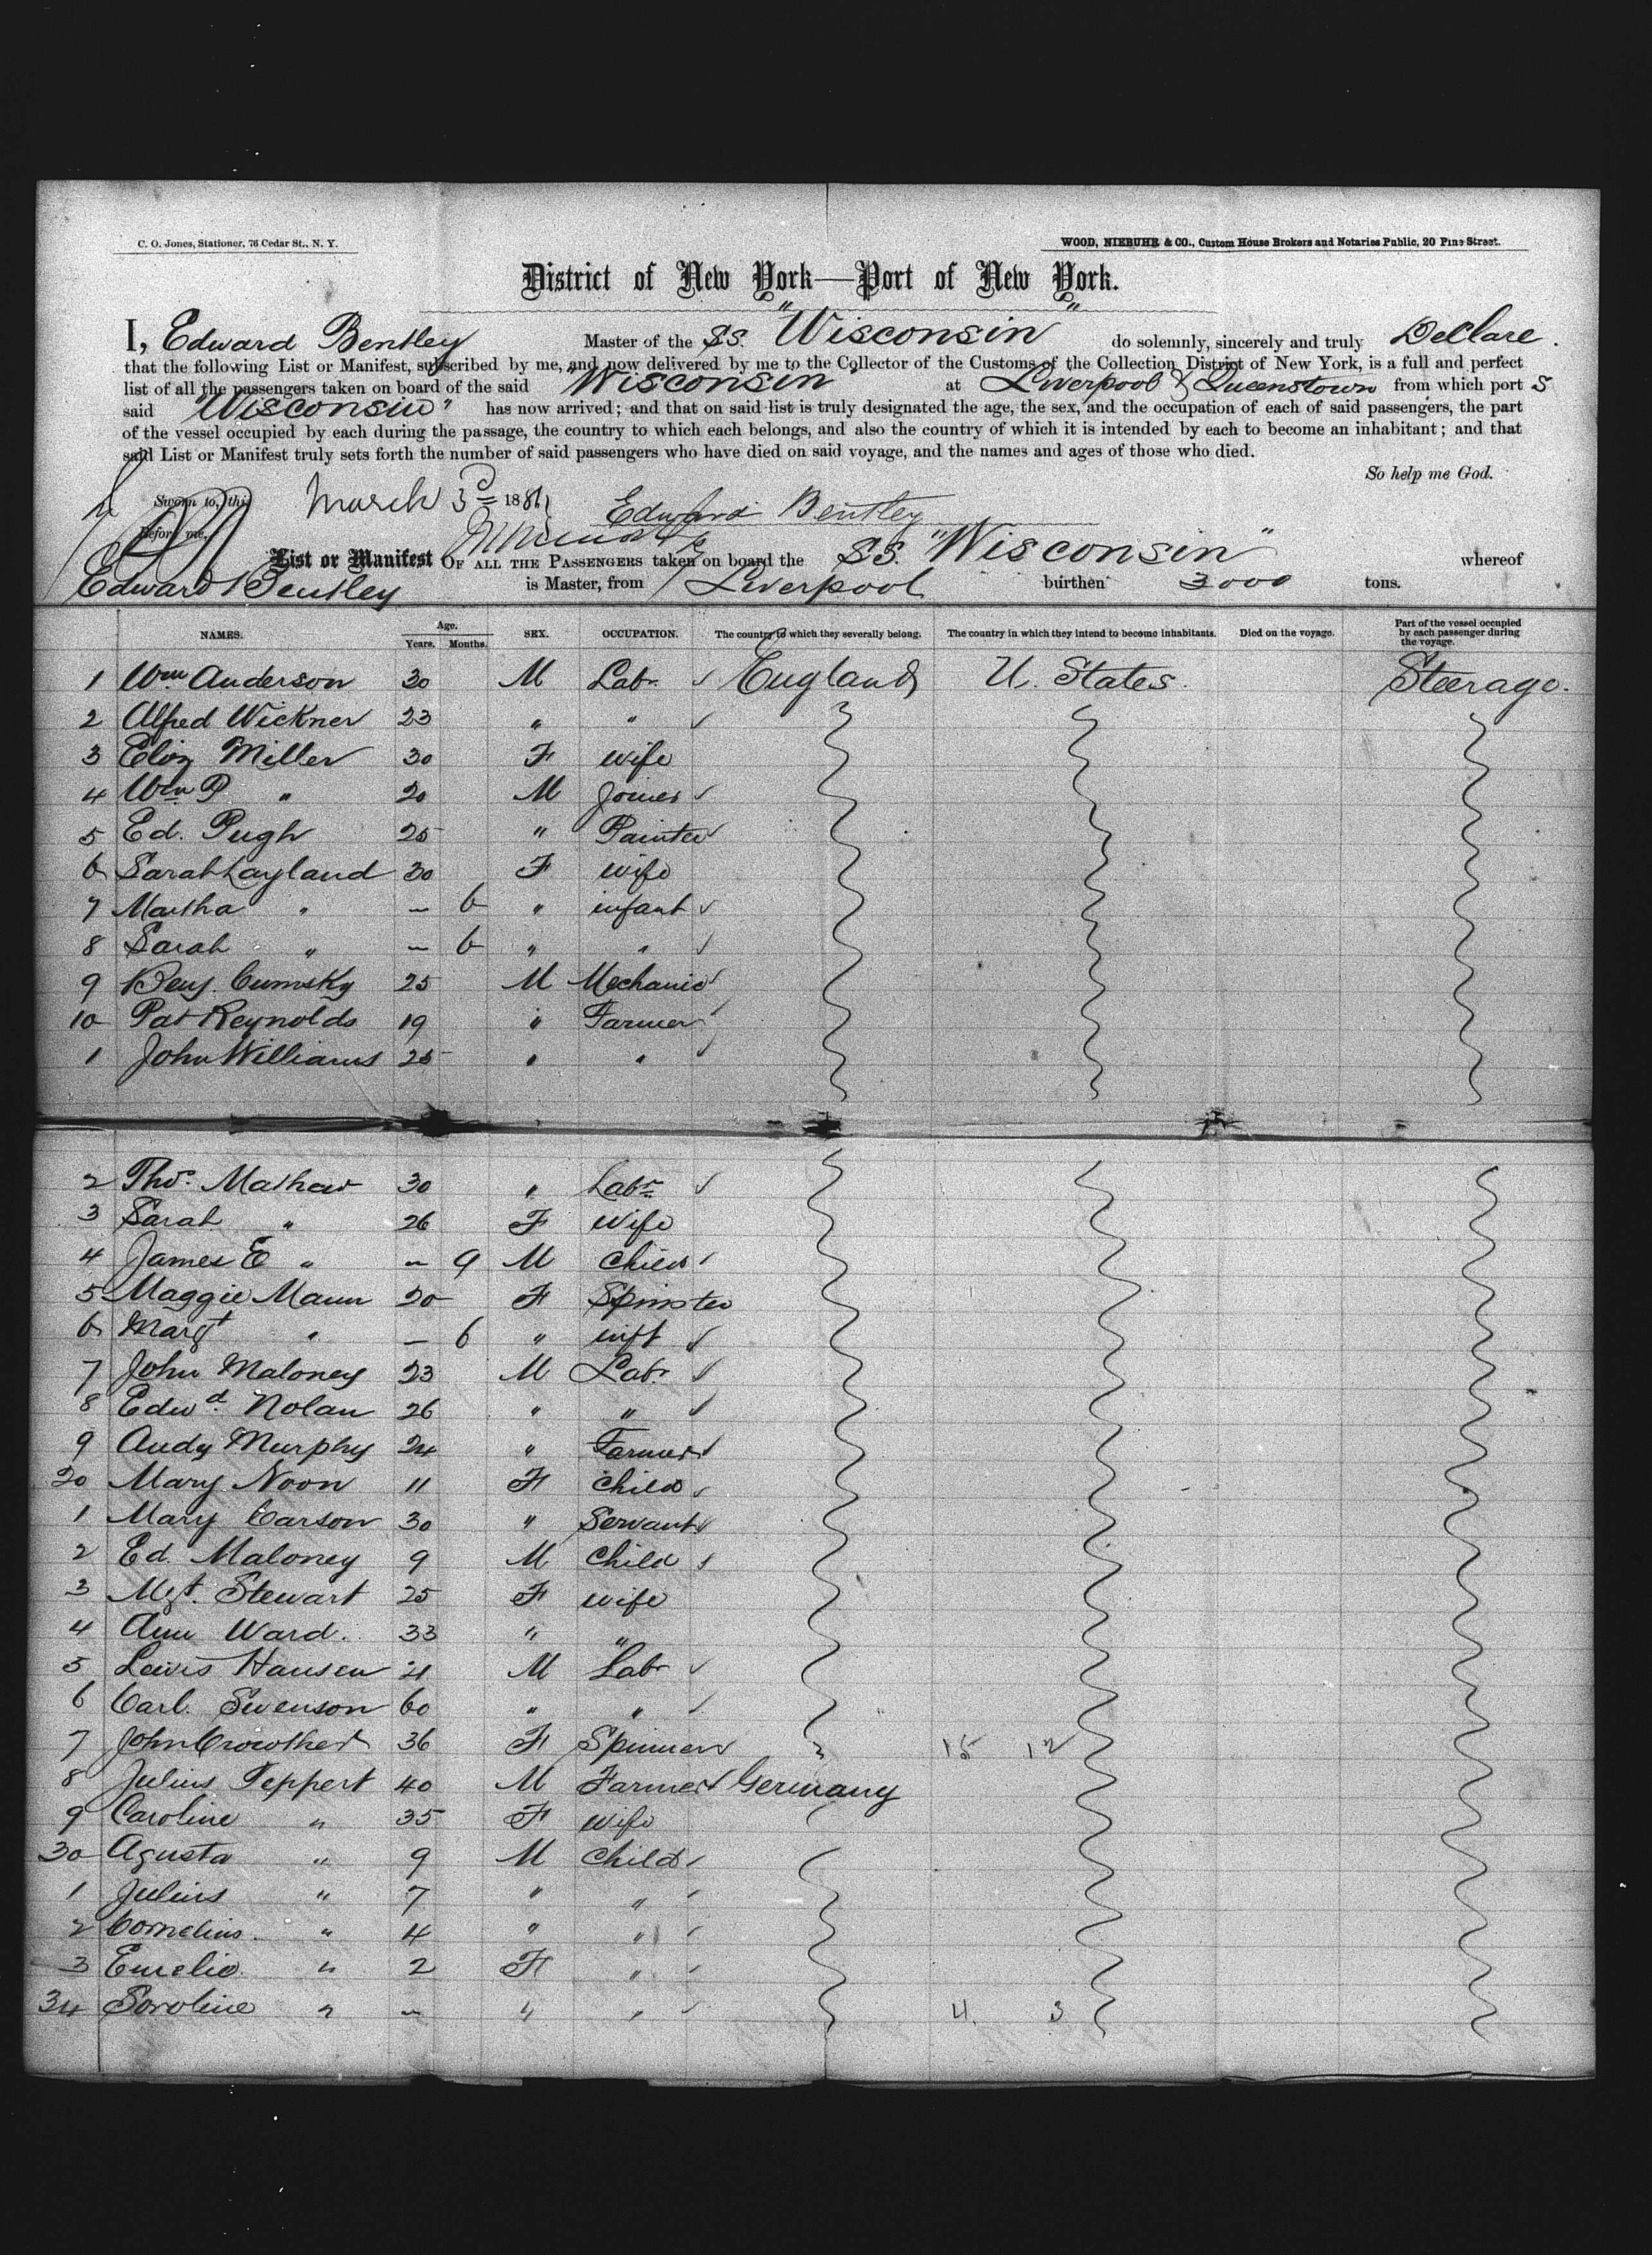 C. O. Jones, Stationer, 76 Cedar St., N. Y.
WOOD, NIEBUHR & CO., Custom House Brokers and Notaries Public, 20 Pine Street.
District of New York—Port of New York.
I, Edward Bentley Master of the SS. "Wisconsin" do solemnly, sincerely and truly Declare.
that the following List or Manifest, subscribed by me, and now delivered by me to the Collector of the Customs of the Collection District of New York, is a full and perfect
list of all the passengers taken on board of the said "Wisconsin" at Liverpool & Queenstown from which port s
said "Wisconsin" has now arrived; and that on said list is truly designated the age, the sex, and the occupation of each of said passengers, the part
of the vessel occupied by each during the passage, the country to which each belongs, and also the country of which it is intended by each to become an inhabitant; and that
said List or Manifest truly sets forth the number of said passengers who have died on said voyage, and the names and ages of those who died.
So help me God.
Sworn to, this March 3d 188
Edward Bentley
Before me,
List or Manifest OF ALL THE PASSENGERS taken on board the SS. "Wisconsin" whereof
Edward Bentley is Master, from Liverpool burthen 3000 tons.
NAMES. Age. Years. Months. SEX. OCCUPATION. The country to which they severally belong. The country in which they intend to become inhabitants. Died on the voyage. Part of the vessel occupied by each passenger during the voyage.
1 Wm Anderson 30 M Labr ✓ England U. States. Steerage.
2 Alfred Wickner 23 " " ✓
3 Eliz Miller 30 F wife
4 Wm P " 20 M Joiner ✓
5 Ed. Pugh 25 " Painter ✓
6 Sarah Layland 30 F wife
7 Martha " — 6 " infant ✓
8 Sarah " — 6 " " ✓
9 Benj. Cumsky 25 M Mechanic ✓
10 Pat Reynolds 19 " Farmer ✓
1 John Williams 25 " " ✓
2 Thos. Mathew 30 " Labr ✓
3 Sarah " 26 F Wife
4 James E " — 9 M Child ✓
5 Maggie Mann 20 F Spinster
6 Margt " — 6 " inft ✓
7 John Maloney 23 M Labr ✓
8 Edwd. Nolan 26 " " ✓
9 Andy Murphy 24 " Farmer ✓
20 Mary Noon 11 F Child ✓
1 Mary Carson 30 " Servant ✓
2 Ed. Maloney 9 M Child ✓
3 Mgt. Stewart 25 F wife
4 Ann Ward. 33 " "
5 Lewis Hansen 21 M Labr ✓
6 Carl. Swenson 60 " " ✓
7 John Crowther 36 F Spinner ✓ 15 12
8 Julius Teppert 40 M Farmer ✓ Germany
9 Caroline " 35 F wife
30 Agusta " 9 M Child ✓
1 Julius " 7 " " ✓
2 Cornelius. " 4 " " ✓
3 Emelie " 2 F " ✓
34 Soroline " — " " ✓ 4. 3